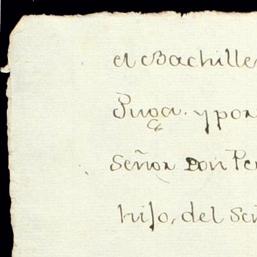 el Bachille
Puga. y por
Señor Don Pe
hijo, del Señ